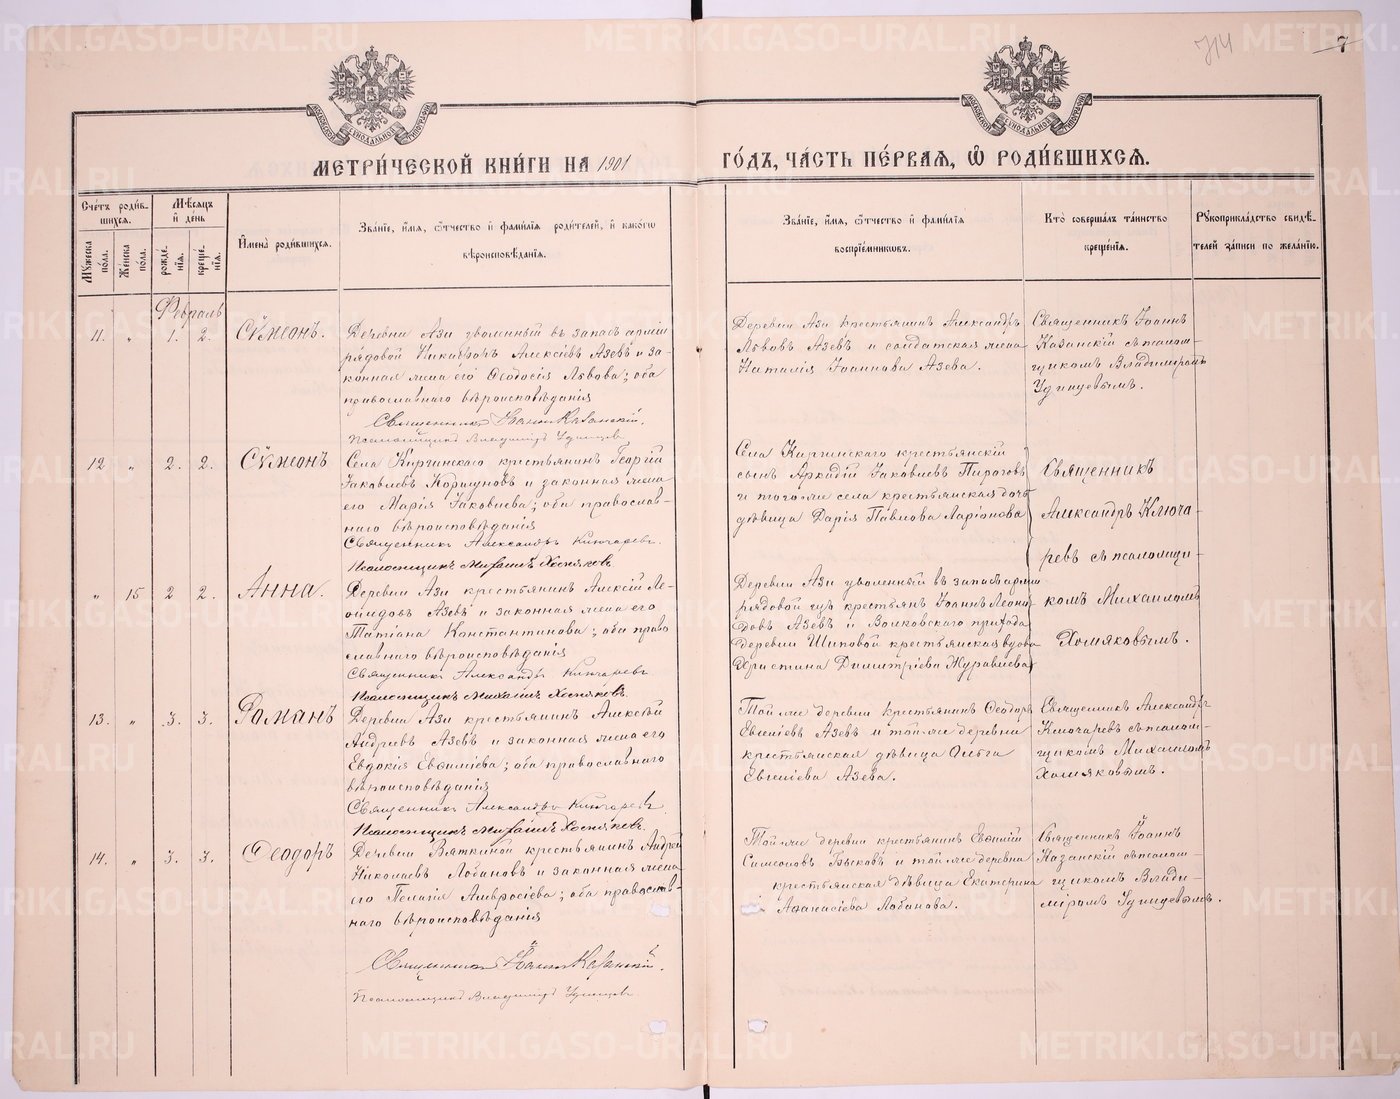 714
7
МЕТРИ́ЧЕСКОЙ КНИ́ГИ НА 1901 ГО́ДЪ, ЧА́СТЬ ПЕ́РВАЯ, Ѡ РОДИ́ВШИХСЯ.
Счётъ роди́вшихся.
Мѣсяцъ и день
Имена роди́вшихся.
Зва́нїе, и́мя, ѻ́тчество и фами́лїя роди́телей, и како́гѡ
вѣроисповѣ́данїя.
Зва́нїе, и́мя, ѻ́тчество и фами́лїя
воспрїе́мниковъ.
Кто̀ соверша́лъ та́инство
креще́нїя.
Рꙋкоприкла́дство свидѣ́-
телей за́писи по жела́нїю.
Мꙋжеска по́ла.
Же́нска по́ла.
рожде́нїя.
креще́нїя.
Февраль
11. " 1. 2. Сѵмеонъ.
Деревни Ази уволенный въ запасъ арміи
рядовой Никифоръ Алексѣевъ Азевъ и за-
конная жена его Ѳеодосія Львова; оба
православнаго вѣроисповѣданія
Священникъ Іоаннъ Казанскій.
Псаломщикъ Владиміръ Удинцевъ
Деревни Ази крестьянинъ Александръ
Львовъ Азевъ и солдатская жена
Наталія Іоаннова Азева.
Священникъ Іоаннъ
Казанскій съ псалом-
щикомъ Владиміромъ
Удинцевымъ.
12 " 2. 2. Сѵмеонъ
Села Киргинскаго крестьянинъ Георгій
Іаковлевъ Коршуновъ и законная жена
его Марія Іаковлева; оба православ-
наго вѣроисповѣданія
Священникъ Александръ Ключаревъ.
Псаломщикъ Михаилъ Хомяковъ
Села Киргинскаго крестьянскій
сынъ Аркадій Іаковлевъ Пироговъ
и того же села крестьянская дочь
дѣвица Дарія Павлова Ларіонова
Священникъ
Александръ Ключа-
ревъ съ псаломщи-
комъ Михаиломъ
Хомяковымъ.
" 15 2 2. Анна.
Деревни Ази крестьянинъ Алексій Ле-
онидовъ Азевъ и законная жена его
Татіана Константинова; оба право
славнаго вѣроисповѣданія
Священникъ Александръ Ключаревъ
Псаломщикъ Михаилъ Хомяковъ.
Деревни Ази уволенный въ запасъ арміи
рядовой изъ крестьянъ Іоаннъ Леони-
довъ Азевъ и Волковскаго прихода
деревни Шиповой крестьянская вдова
Христина Димитріева Журавлева
13. " 3. 3. Романъ
Деревни Ази крестьянинъ Алексѣй
Андреевъ Азевъ и законная жена его
Евдокія Евѳиміева; оба православнаго
вѣроисповѣданія
Священникъ Александръ Ключаревъ
Псаломщикъ Михаилъ Хомяковъ.
Той же деревни крестьянинъ Ѳеодоръ
Евгеніевъ Азевъ и той же деревни
крестьянская дѣвица Ольга
Евгеніева Азева.
Священникъ Александръ
Ключаревъ съ псалом-
щикомъ Михаиломъ
Хомяковымъ.
14. " 3. 3. Ѳеодоръ
Деревни Вяткиной крестьянинъ Андрей
Николаевъ Лобановъ и законная жена
его Пелагія Амвросіева; оба православ-
наго вѣроисповѣданія
Священникъ Іоаннъ Казанскій.
Псаломщикъ Владиміръ Удинцевъ
Той же деревни крестьянинъ Евѳимій
Симеоновъ Быковъ и той же деревни
крестьянская дѣвица Екатерина
Аѳанасіева Лобанова.
Священникъ Іоаннъ
Казанскій съ псалом-
щикомъ Влади-
міромъ Удинцевымъ.
METRIKI.GASO-URAL.RU